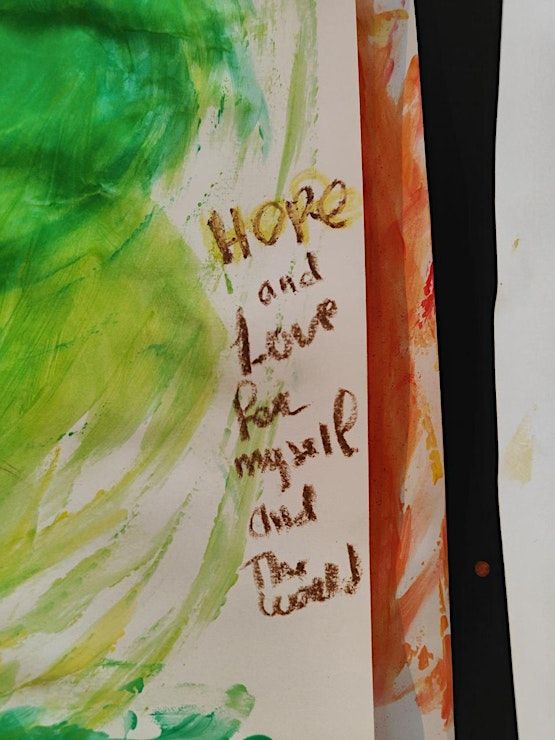 HOPE
and
Love
for
myself
and
The
World